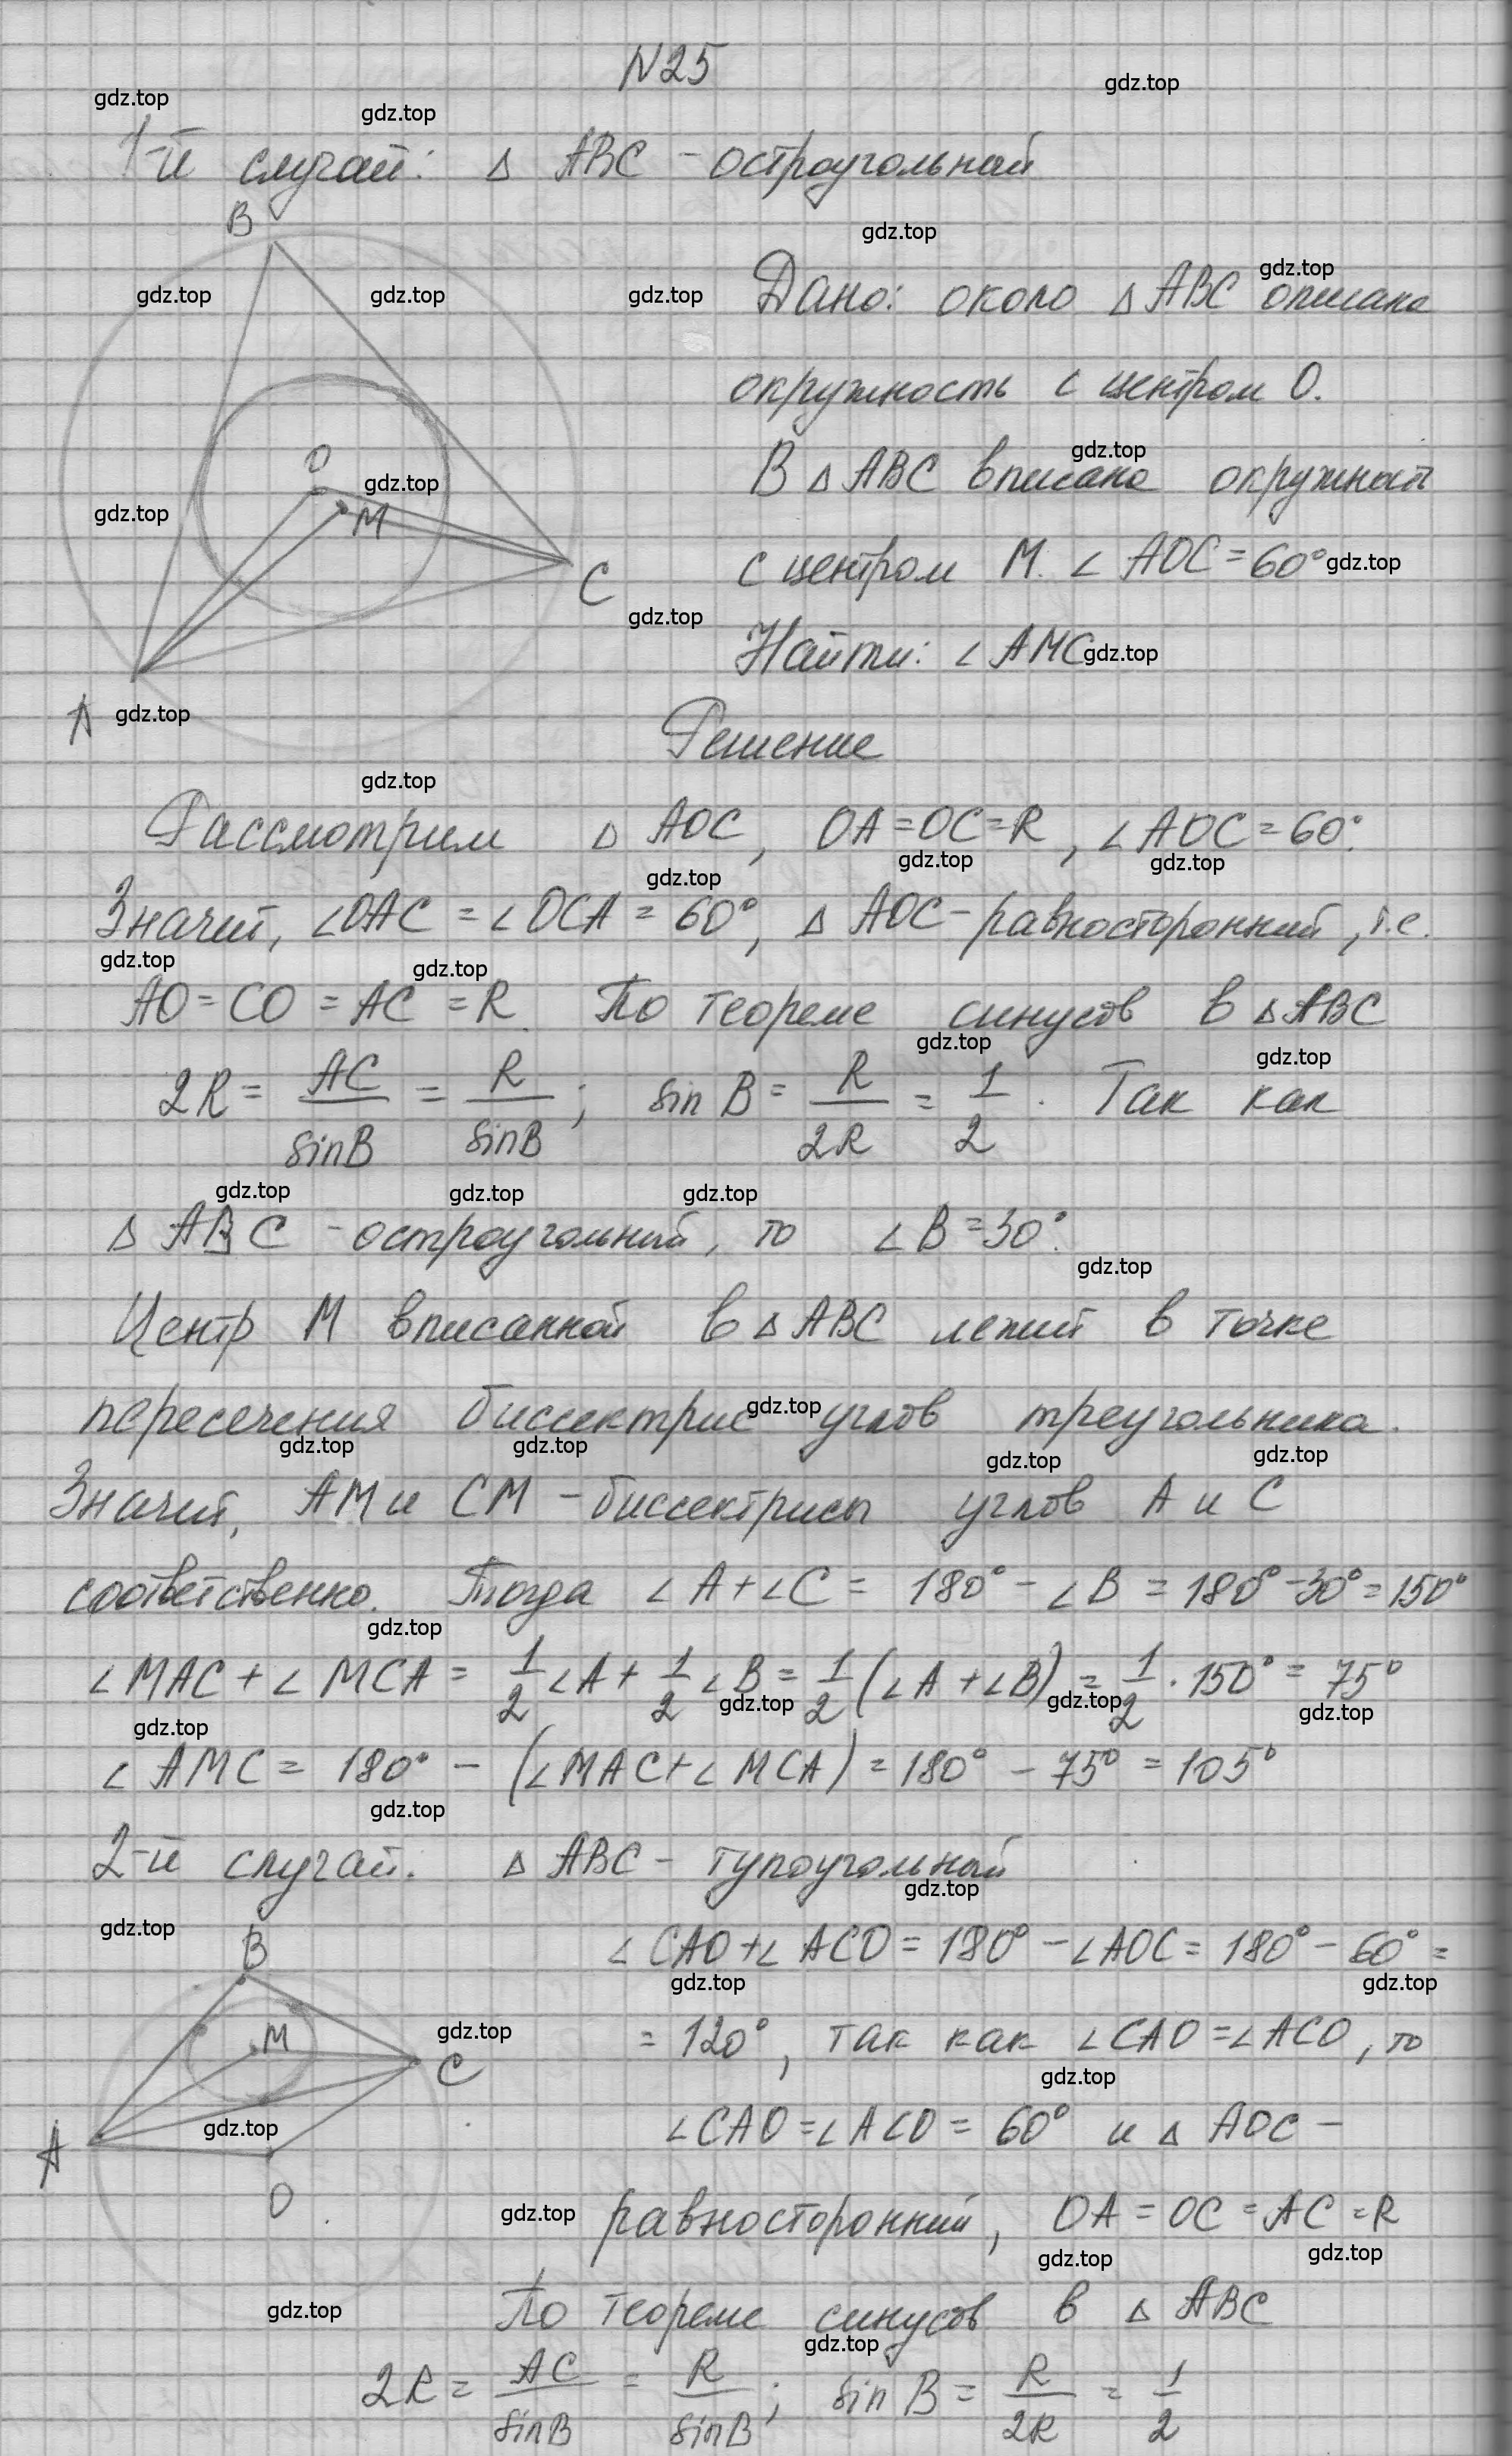 N25
1-й случай: Δ ABC - остроугольный
B
Дано: около Δ ABC описана
окружность с центром O.
O
В Δ ABC вписана окружност
M
с центром M. ∠ AOC = 60°
C
Найти: ∠ AMC
A
Решение
Рассмотрим Δ AOC, OA = OC = R, ∠ AOC = 60°.
Значит, ∠OAC = ∠OCA = 60°, Δ AOC - равносторонний, т.е.
AO = CO = AC = R. По теореме синусов в Δ ABC
2R = AC/sinB = R/sinB; sin B = R/2R = 1/2. Так как
Δ ABC - остроугольный, то ∠B = 30°.
Центр M вписанной в Δ ABC лежит в точке
пересечения биссектрис углов треугольника.
Значит, AM и CM - биссектрисы углов A и C
соответственно. Тогда ∠A + ∠C = 180° - ∠B = 180° - 30° = 150°
∠MAC + ∠MCA = 1/2 ∠A + 1/2 ∠B = 1/2 (∠A + ∠B) = 1/2 · 150° = 75°
∠AMC = 180° - (∠MAC + ∠MCA) = 180° - 75° = 105°
2-й случай. Δ ABC - тупоугольный
B
∠CAO + ∠ACO = 180° - ∠AOC = 180° - 60° =
M
= 120°, так как ∠CAO = ∠ACO, то
C
∠CAO = ∠ACO = 60° и Δ AOC -
A
O
равносторонний, OA = OC = AC = R
По теореме синусов в Δ ABC
2R = AC/sinB = R/sinB; sin B = R/2R = 1/2
gdz.top